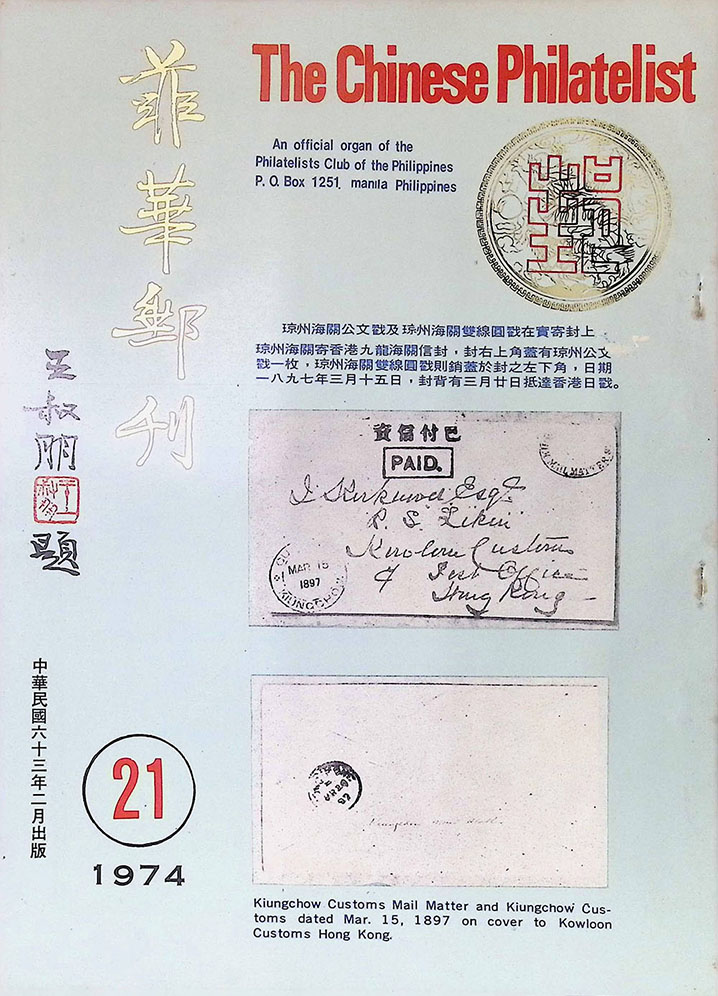 The Chinese Philatelist
菲華郵刊
An official organ of the
Philatelists Club of the Philippines
P. O. Box 1251, manila Philippines
王叔朋
題
琼州海關公文戳及琼州海關雙線圓戳在實寄封上
琼州海關寄香港九龍海關信封，封右上角蓋有琼州公文
戳一枚，琼州海關雙線圓戳則銷蓋於封之左下角，日期
一八九七年三月十五日，封背有三月廿日抵達香港日戳。
資信付已
PAID.
J. Kirkwood Esqr.
R. S. Likin
Kowloon Customs
Post Office
Hong Kong
MAR 15
1897
KIUNGCHOW
中華民國六十三年二月出版
21
1974
Kiungchow Customs Mail Matter and Kiungchow Cus-
toms dated Mar. 15, 1897 on cover to Kowloon
Customs Hong Kong.